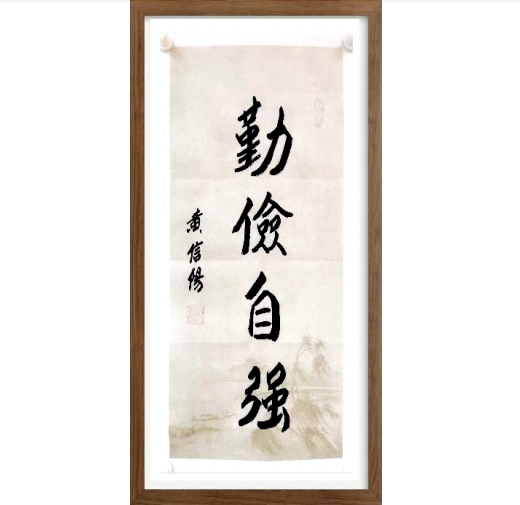 勤儉自强
黄信陽